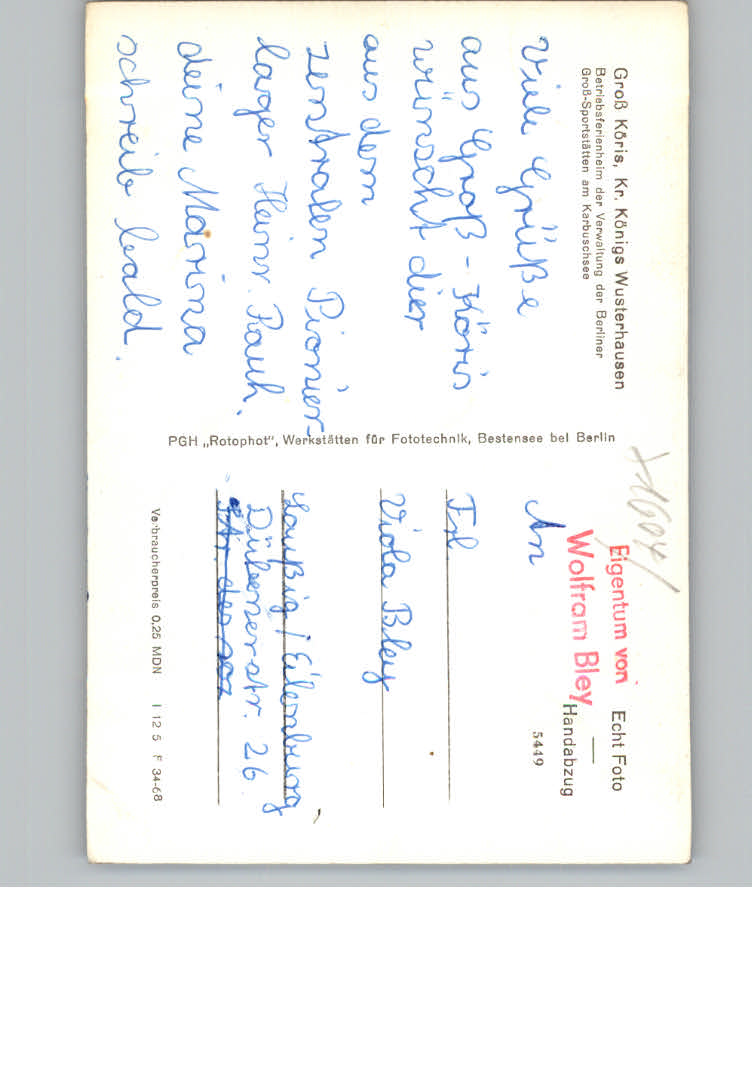 Groß Köris, Kr. Königs Wusterhausen
Betriebsferienheim der Verwaltung der Berliner
Groß-Sportstätten am Karbuschsee
Viele Grüße
aus Groß-Köris
wünscht dier
aus dem
zentralen Pionier-
lager Heinr. Rauh.
deine Marina
schreib bald.
PGH „Rotophot“, Werkstätten für Fototechnik, Bestensee bei Berlin
Eigentum von
Wolfram Bley
Echt Foto
Handabzug
5449
An
Frl
Viola Bley
Laußig / Eilenburg
Dübenerstr. 26
Verbraucherpreis 0,25 MDN I 12 5 F 34-68